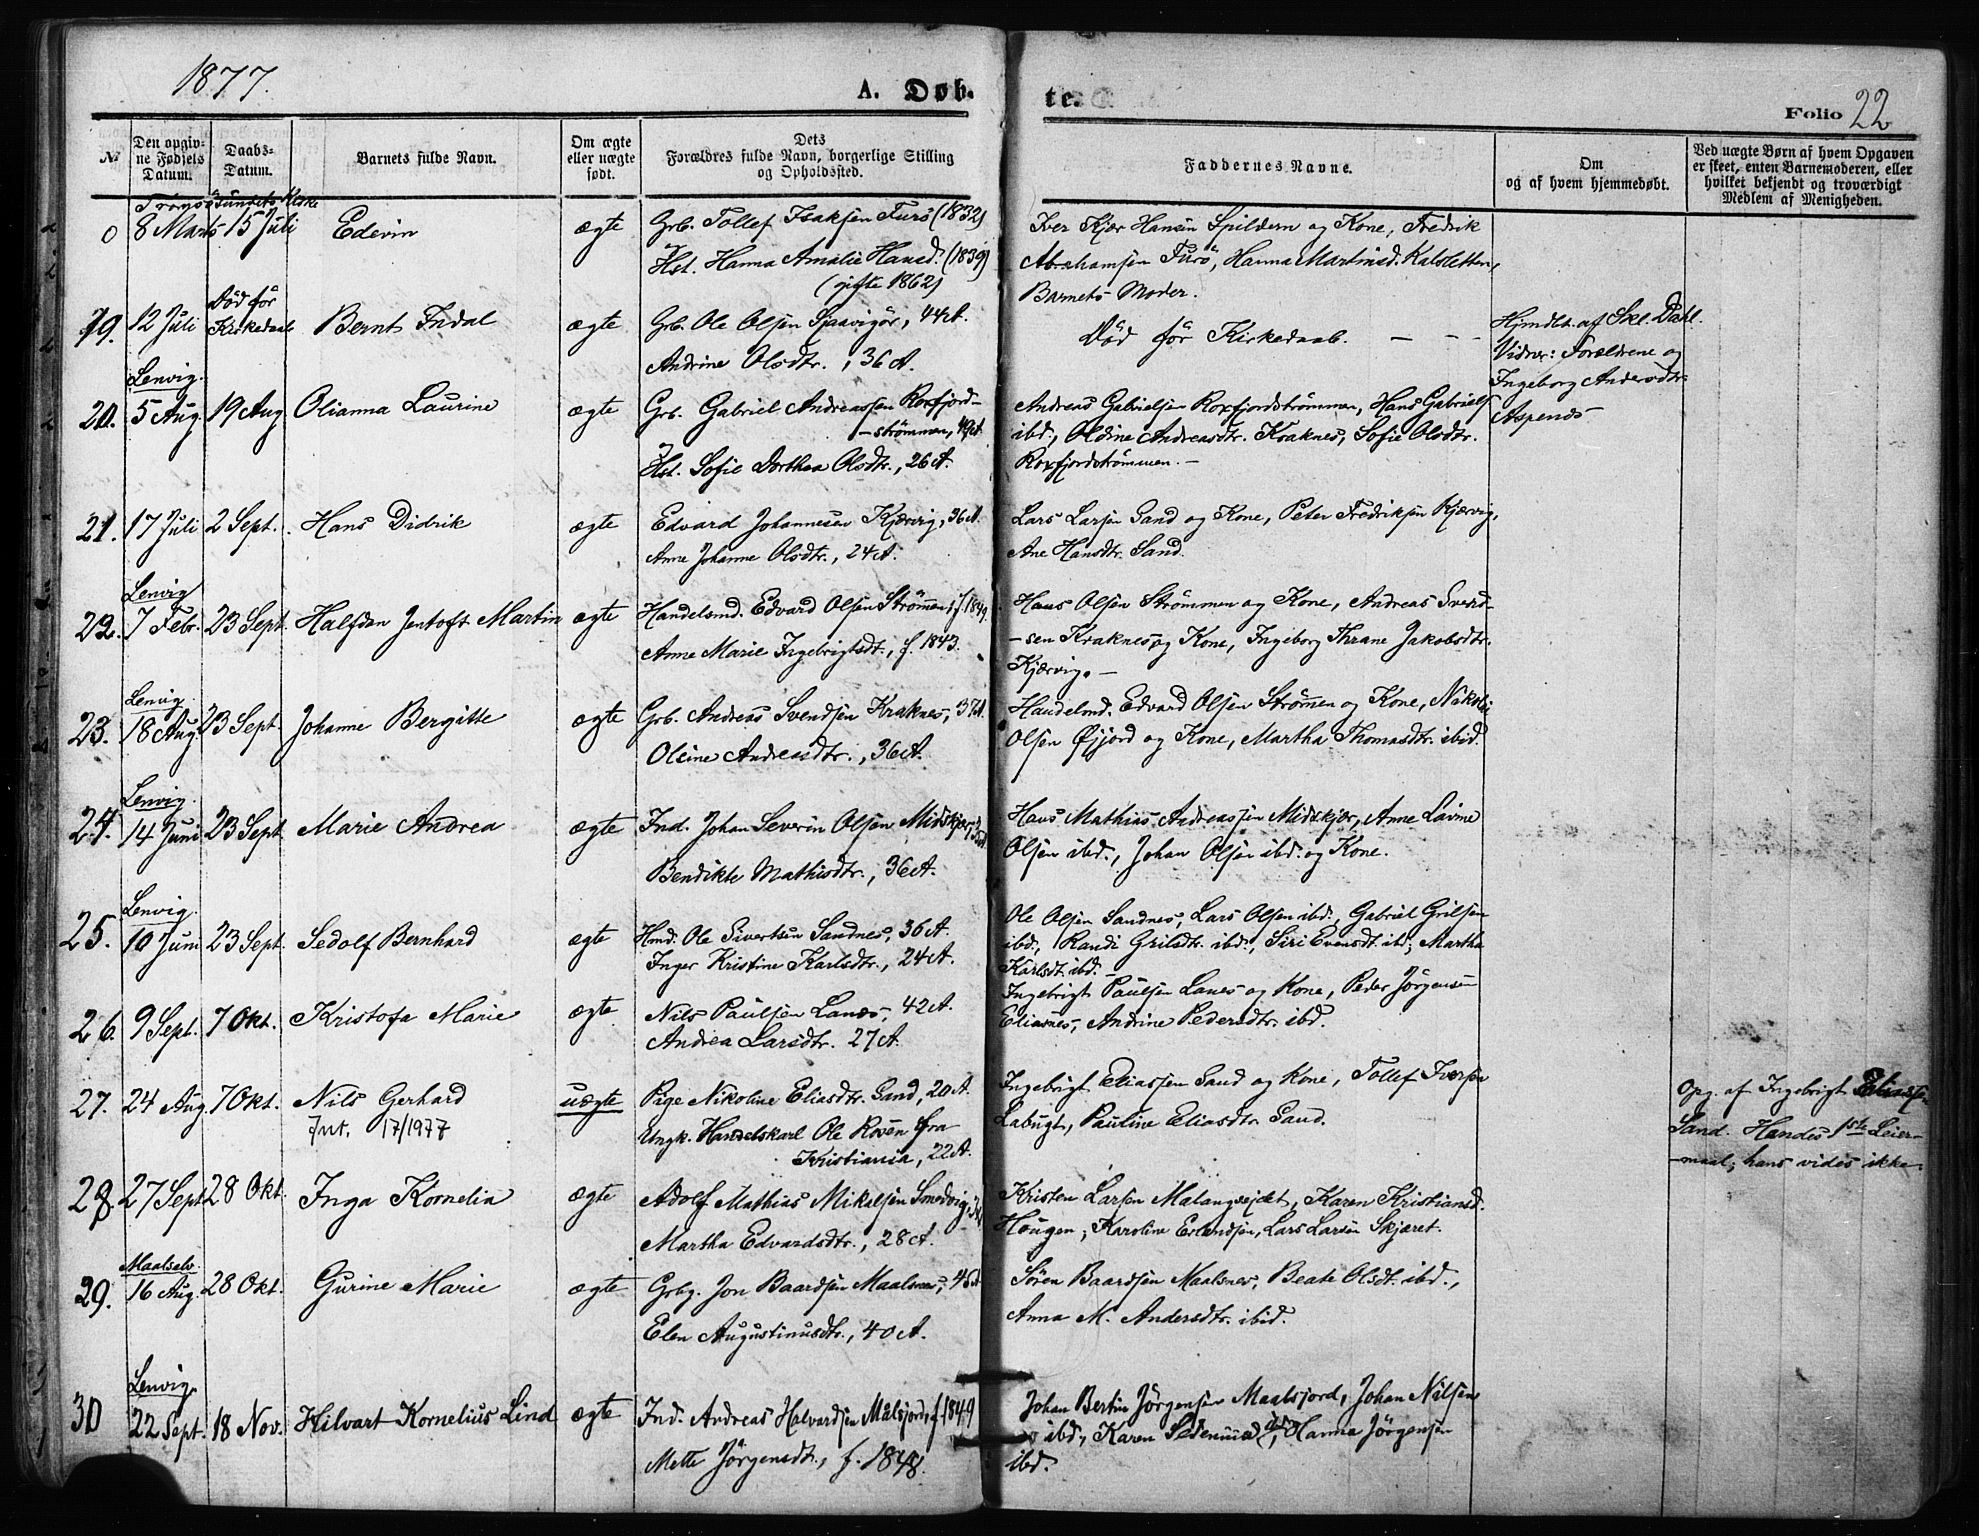 1877.
A. Døb.
te.
Folio 22
№
Den opgiv-
ne Fødsels
Datum.
Daabs-
Datum.
Barnets fulde Navn.
Om ægte
eller uægte
født.
Dets
Forældres fulde Navn, borgerlige Stilling
og Opholdssted.
Faddernes Navne.
Om
og af hvem hjemmedøbt.
Ved uægte Børn af hvem Opgaven
er skeet, enten Barnemoderen, eller
hvilket bekjendt og troværdigt
Medlem af Menigheden.
Tromsösundets Kirke
0 8 Marts 15 Juli Edevin ægte Grb. Tollef Isaksen Furö (1832)
Hst. Hanna Amalie Hansd. (1839)
(gifte 1862)
Iver Kjær Hansen Spildern og Kone, Fredrik
Abrahamsen Furö, Hanna Martinsd. Kalsletten,
Barnets Moder.
19. 12 Juli Död för
Kirkedaab Bernt Indal ægte Grb. Ole Olsen 44 A.
Andrine Olsdtr., 36 A.
Död för Kirkedaab. — - -
Hjmdt. af Skl. Dahl.
Vidner: Forældrene og
Ingeborg Andersdtr.
Aspenes
Lenvig.
20. 5 Aug. 19 Aug Olianna Laurine ægte Grb. Gabriel Andreassen Roxfjord-
-strömmen, 49 A
Hst. Sofie Dorthea Olsdtr., 26 A.
Andreas Gabrielsen Roxfjordströmmen, Hans Gabriels
ibd., Oldine Andreasdtr. Kraknes, Sofie Olsdtr.
Roxfjordströmmen. —
21. 17 Juli 2 Sept. Hans Didrik ægte Edvard Johannesen Kjærvig, 36 A.
Anne Johanne Olsdtr., 24 A.
Lars Larsen Sand og Kone, Peter Fredriksen Kjærvig,
Ane Hansdtr. Sand.
Lenvig
22. 7 Febr. 23 Sept. Halfdan Jentoft Martin ægte Handelsmd. Edvard Olsen Strömmen, f. 1849.
Anne Marie Ingebrigtsdt., f. 1843.
Hans Olsen Strömmen og Kone, Andreas Svend-
-sen Kraknes og Kone, Ingeborg Thrane Jakobsdtr.
Kjærvig. —
Lenvig
23. 18 Aug. 23 Sept Johanne Bergitte ægte Grb. Andreas Svendsen Kraknes, 37 A.
Olsine Andreasdtr., 36 A.
Handelsmd. Edvard Olsen Strömmen og Kone, Nikolai
Olsen Øijord og Kone, Martha Thomasdtr. ibid.
Lenvig.
24. 14 Juni 23 Sept. Marie Andrea ægte Ind. Johan Severin Olsen Midskjær,
Bendikte Mathisdtr., 36 A.
Hans Mathias Andreassen Midskjær, Anne Lavine
Olsen ibd., Johan Olsen ibd. og Kone.
Lenvig.
25. 10 Juni 23 Sept. Sedolf Bernhard ægte Hmd. Ole Sivertsen Sandnes, 36 A.
Inger Kristine Karlsdtr., 24 A.
Ole Olsen Sandnes, Lars Olsen ibd., Gabriel Grilsen
ibd., Randi Grilsdtr. ibd., Siri Evensdt. ibd., Martha
Karlsdt. ibd. —
26. 9 Sept. 7 Okt. Kristofa Marie ægte Nils Paulsen Lanes, 42 A.
Andrea Larsdtr. 27 A.
Ingebrigt Paulsen Lanes og Kone, Peder Jörgensen
Eliasnes, Andrine Pedersdtr. ibd.
27. 24 Aug 7 Okt. Nils Gerhard
Jnt. 17/1977 uægte Pige Nikoline Eliasdtr. Sand, 20 A.
Ungk. Handelskarl Ole Rosen fra
Kristiania, 22 A.
Ingebrigt Eliassen Sand og Kone, Tollef Iversen
Labugt, Pauline Eliasdtr. Sand.
Opg. af Ingebrigt Eliassen
Sand. Hendes 1ste Leier-
-maal; hans vides ikke.
28. 27 Sept 28 Okt. Inga Kornelia ægte Adolf Mathias Mikalsen Smedvig,
Martha Edvardsdtr., 28 A.
Kristen Larsen Malangseidet, Karen Kristiansd.
Hougen, Karoline Erlendsen, Lars Larsen Skjæret.
Maalselv.
29. 16 Aug. 28 Okt. Gurine Marie ægte Grbg. Jon Baardsen Maalsnes, 45 A
Elen Augustinusdtr., 40 A.
Sören Baardsen Maalsnes, Beate Olsdt. ibd.,
Anna M. Andersdtr. ibid.
Lenvig.
30 22 Sept. 18 Nov. Hilvart Kornelius Lind ægte Ind. Andreas Halvardsen Målsjord, f. 1849
Mette Jörgensdtr., f. 1848.
Johan Bertin Jörgensen Maalsjord, Johan Nilsen
ibd., Karen ibd., Hanna Jörgensen
ibd.